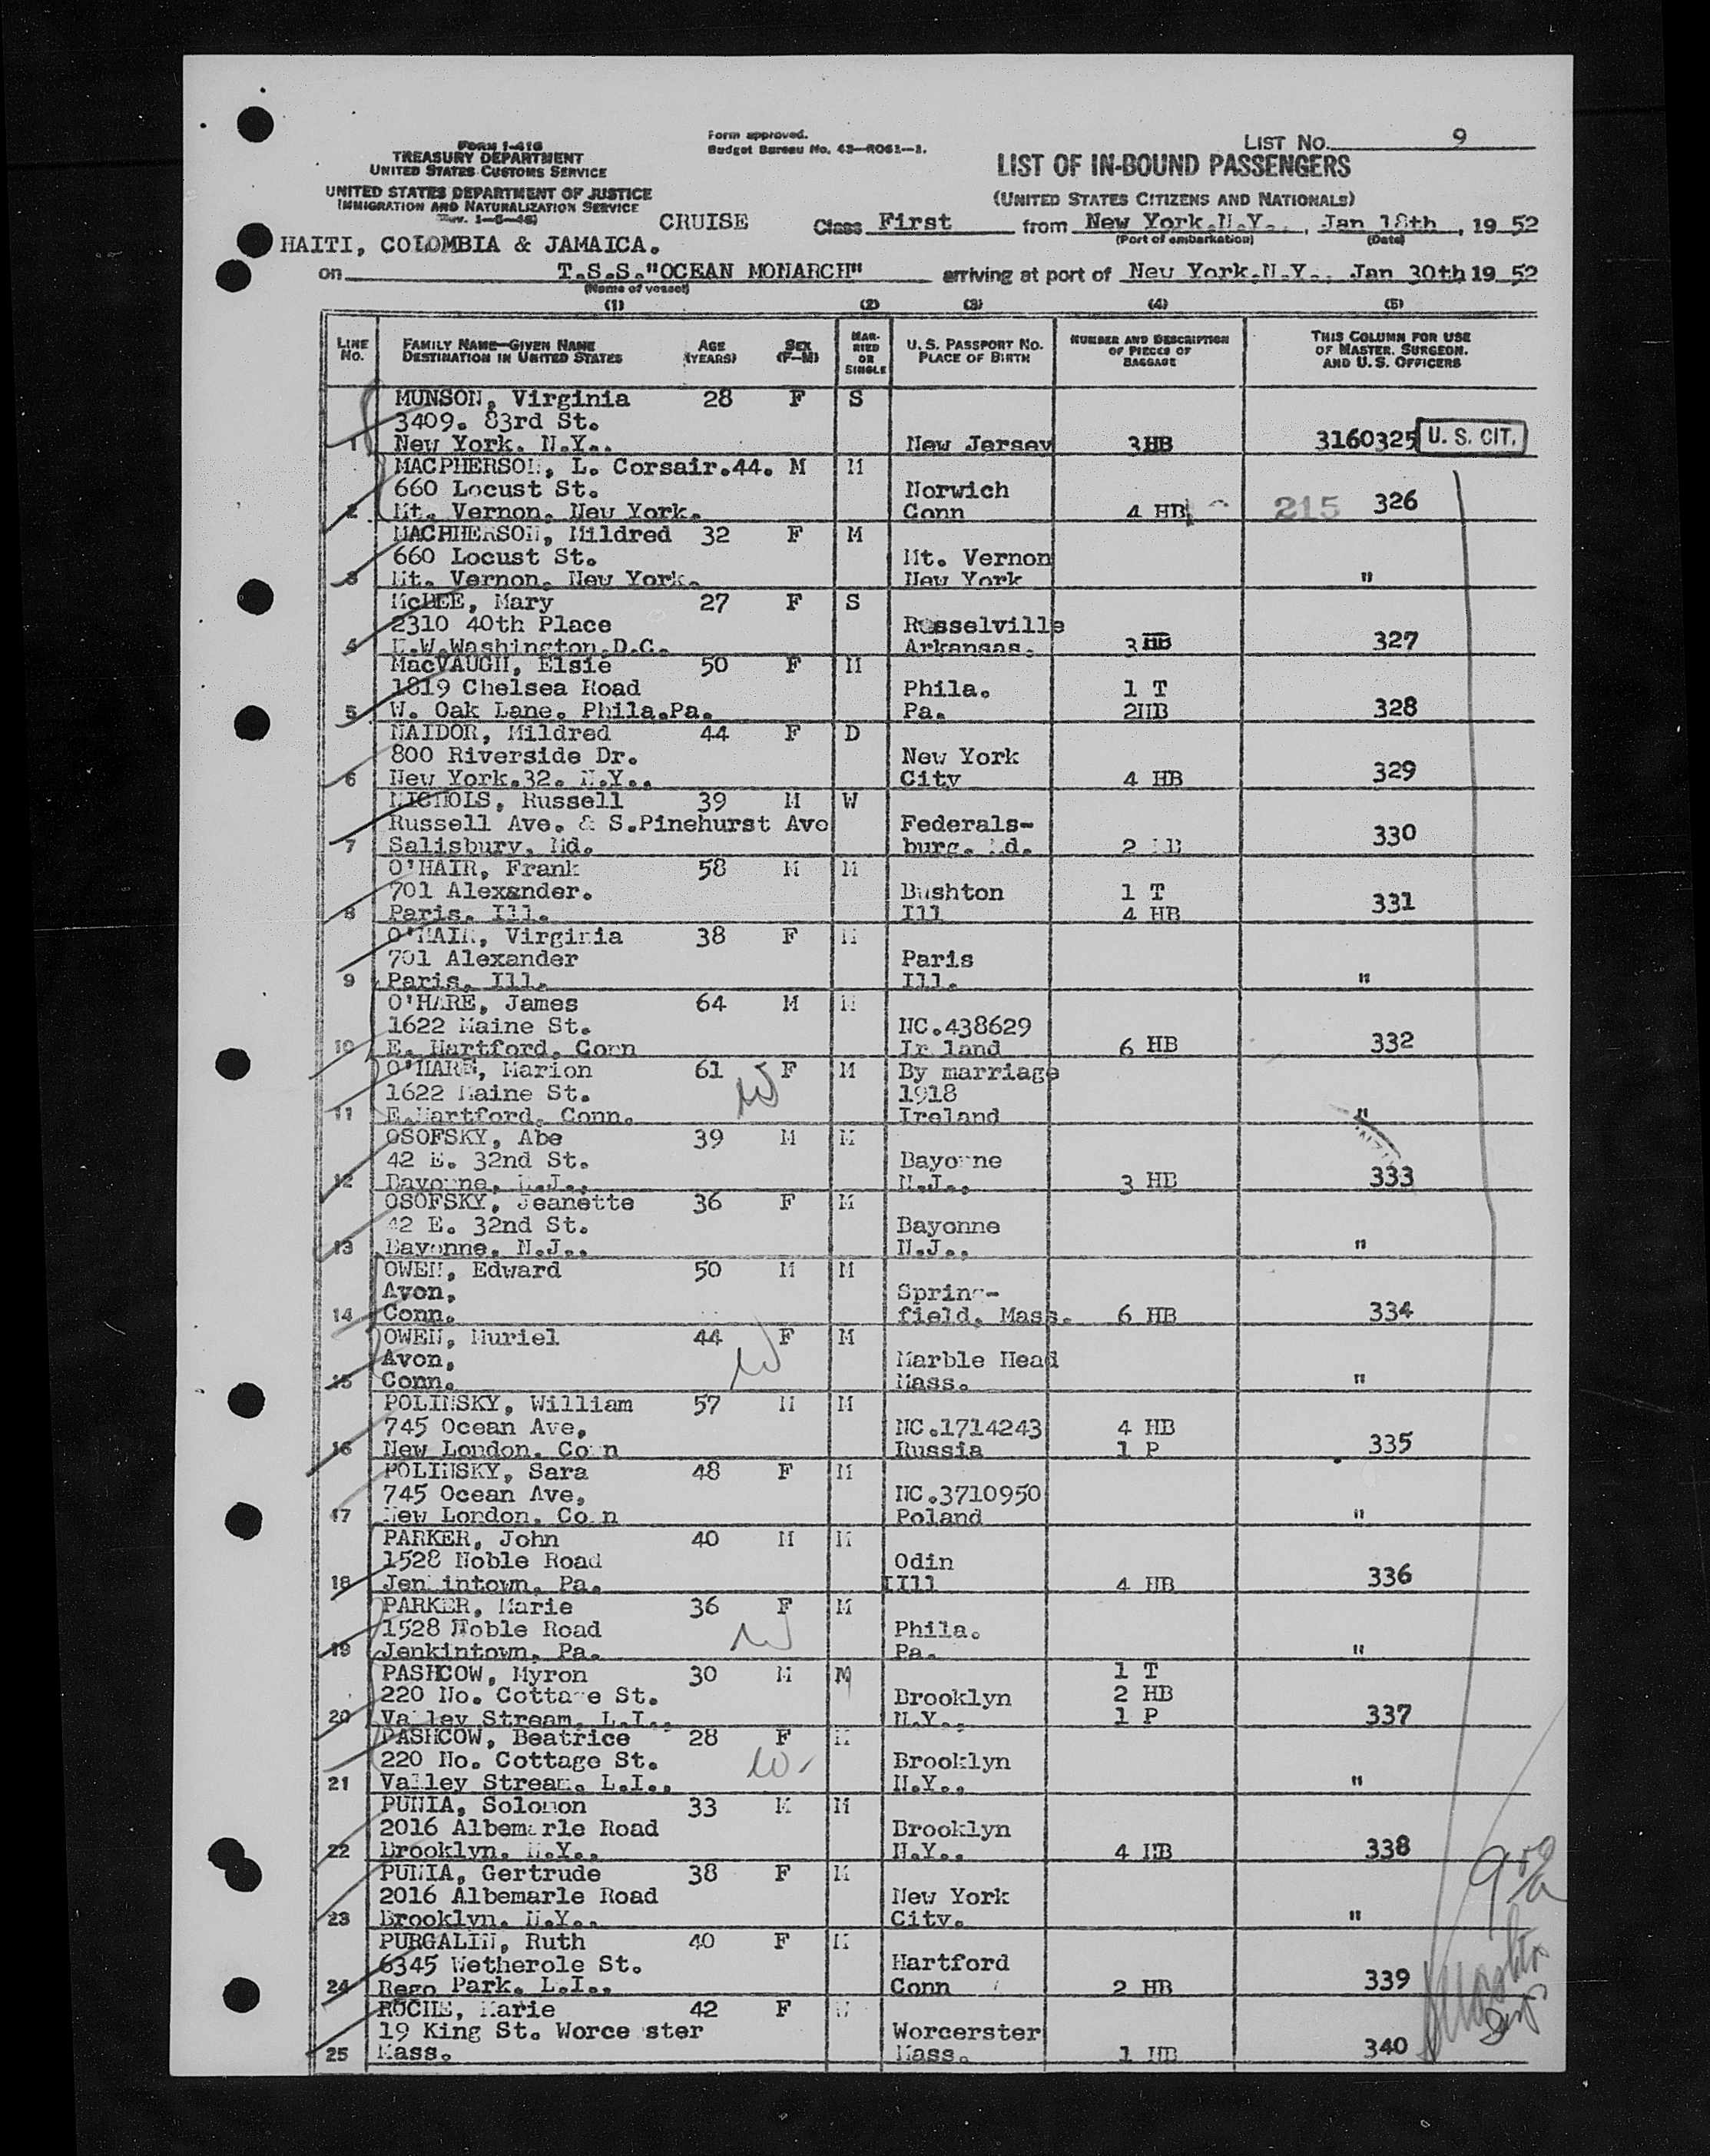 LIST No. 9
FORM I-416
TREASURY DEPARTMENT
UNITED STATES CUSTOMS SERVICE
UNITED STATES DEPARTMENT OF JUSTICE
IMMIGRATION AND NATURALIZATION SERVICE
Form approved.
Budget Bureau No. 43-R061-1.
LIST OF IN-BOUND PASSENGERS
(UNITED STATES CITIZENS AND NATIONALS)
CRUISE Class First from New York.N.Y.. , Jan 18th , 19 52
(Port of embarkation) (Date)
HAITI, COLOMBIA & JAMAICA.
on T.S.S."OCEAN MONARCH" arriving at port of New York.N.Y.. Jan 30th 19 52
(Name of vessel)
(1) (2) (3) (4) (5)
LINE No. FAMILY NAME—GIVEN NAME DESTINATION IN UNITED STATES AGE (YEARS) SEX (F-M) MARRIED OR SINGLE U. S. PASSPORT No. PLACE OF BIRTH NUMBER AND DESCRIPTION OF PIECES OF BAGGAGE THIS COLUMN FOR USE OF MASTER, SURGEON, AND U. S. OFFICERS
MUNSON, Virginia 28 F S
3409. 83rd St.
1 New York. N.Y.. New Jersey 3 HB 3160325 U. S. CIT.
MACPHERSON, L. Corsair.44. M M
660 Locust St. Norwich
2 Mt. Vernon. New York. Conn 4 HB 215 326
MACHHERSON, Mildred 32 F M
660 Locust St. Mt. Vernon
3 Mt. Vernon. New York. New York "
McBEE, Mary 27 F S
2310 40th Place Russelville
4 N.W.Washington.D.C. Arkansas. 3 HB 327
MacVAUGH, Elsie 50 F M
1819 Chelsea Road Phila. 1 T
5 W. Oak Lane. Phila.Pa. Pa. 2HB 328
NAIDOR, Mildred 44 F D
800 Riverside Dr. New York
6 New York.32. N.Y.. City 4 HB 329
NICHOLS, Russell 39 M W
Russell Ave. & S.Pinehurst Ave Federals-
7 Salisbury. Md. burg. Md. 2 HB 330
O'HAIR, Frank 58 M M
701 Alexander. Bushton 1 T
8 Paris. Ill. Ill 4 HB 331
O'HAIR, Virginia 38 F M
701 Alexander Paris
9 Paris. Ill. Ill. "
O'HARE, James 64 M M
1622 Maine St. NC.438629
10 E. Hartford. Conn Ireland 6 HB 332
O'HARE, Marion 61 F M By marriage
1622 Maine St. 1918
11 E.Hartford. Conn. Ireland "
OSOFSKY, Abe 39 M M
42 E. 32nd St. Bayonne
12 Bayonne. N.J.. N.J.. 3 HB 333
OSOFSKY, Jeanette 36 F M
42 E. 32nd St. Bayonne
13 Bayonne. N.J.. N.J.. "
OWEN, Edward 50 M M
Avon, Spring-
14 Conn. field. Mass. 6 HB 334
OWEN, Muriel 44 F M
Avon, Marble Head
15 Conn. Mass. "
POLINSKY, William 57 M M
745 Ocean Ave, NC.1714243 4 HB
16 New London. Conn Russia 1 P 335
POLINSKY, Sara 48 F M
745 Ocean Ave, NC.3710950
17 New London. Conn Poland "
PARKER, John 40 M M
1528 Noble Road Odin
18 Jenkintown. Pa. Ill 4 HB 336
PARKER, Marie 36 F M
1528 Noble Road Phila.
19 Jenkintown. Pa. Pa. "
PASHCOW, Myron 30 M M 1 T
220 No. Cottage St. Brooklyn 2 HB
20 Valley Stream. L.I.. N.Y.. 1 P 337
PASHCOW, Beatrice 28 F M
220 No. Cottage St. Brooklyn
21 Valley Stream. L.I.. N.Y.. "
PUNIA, Solomon 33 M M
2016 Albemarle Road Brooklyn
22 Brooklyn. N.Y.. N.Y.. 4 HB 338
PUNIA, Gertrude 38 F M
2016 Albemarle Road New York
23 Brooklyn. N.Y.. City. "
PURGALIN, Ruth 40 F M
6345 Wetherole St. Hartford
24 Rego Park. L.I.. Conn 2 HB 339
ROCHE, Marie 42 F
19 King St. Worcester Worcerster
25 Mass. Mass. 1 HB 340